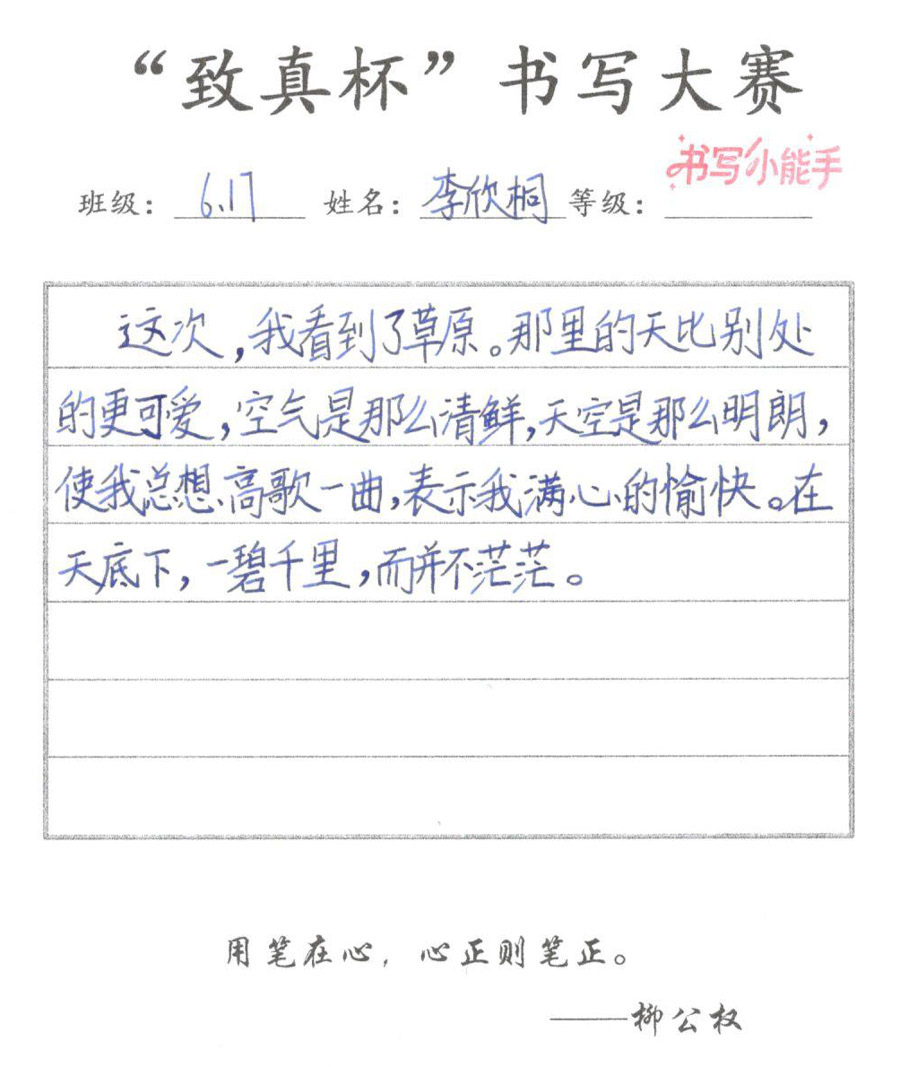 “致真杯”书写大赛
书写小能手
班级：6.17 姓名：李欣桐 等级：
这次，我看到了草原。那里的天比别处
的更可爱，空气是那么清鲜，天空是那么明朗，
使我总想高歌一曲，表示我满心的愉快。在
天底下，一碧千里，而并不茫茫。
用笔在心，心正则笔正。
——柳公权